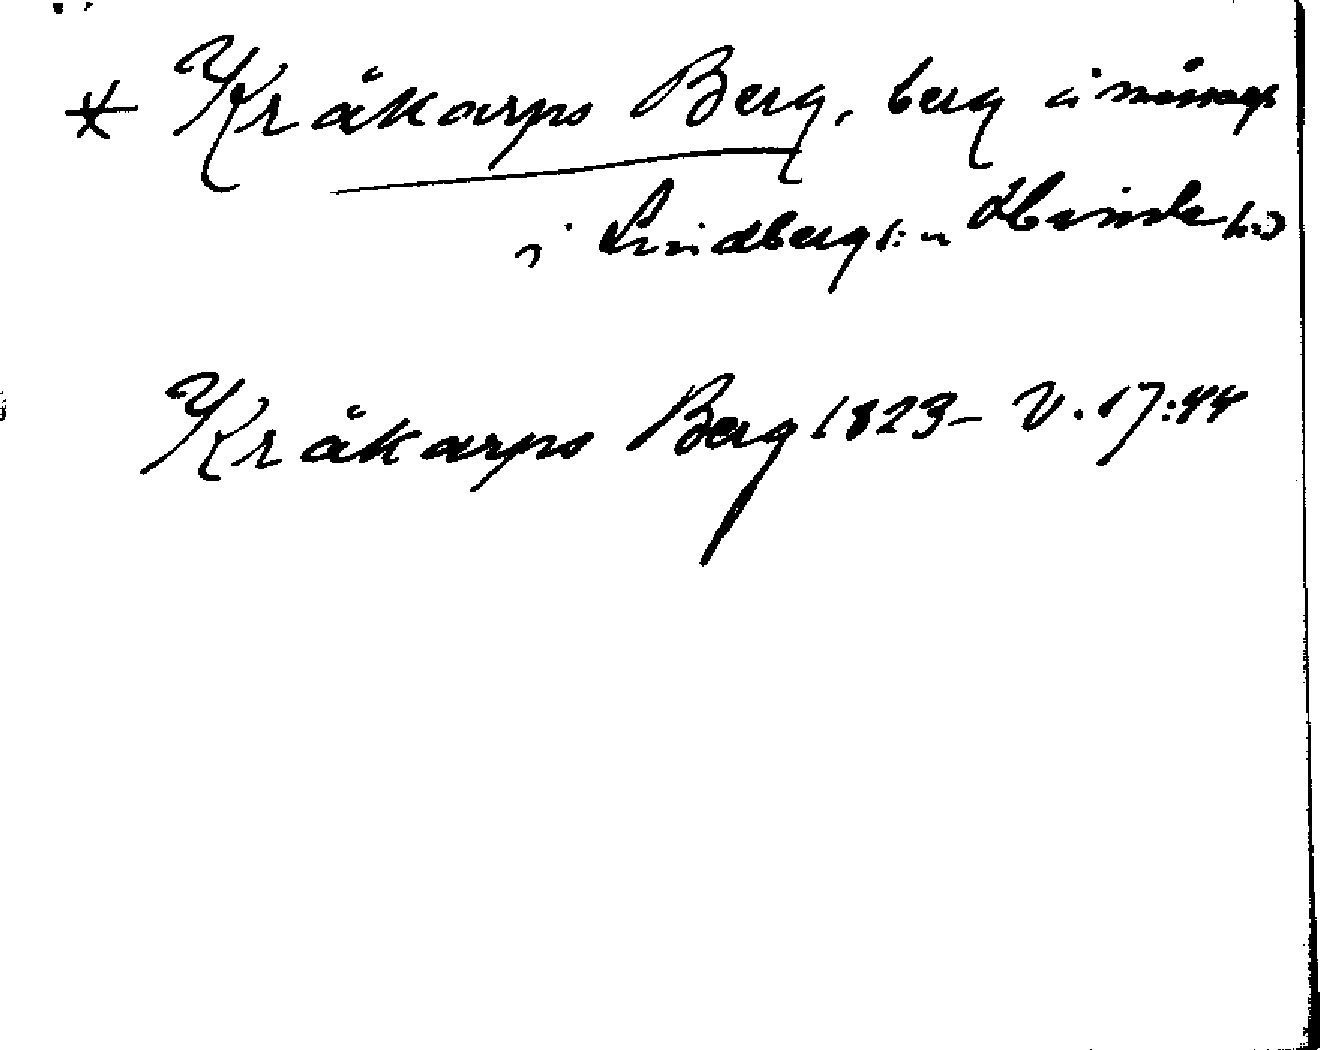 * Kråkarps Berg, berg å
i Lindbergs:n
Kråkarps Berg 1823 – V. 17:44